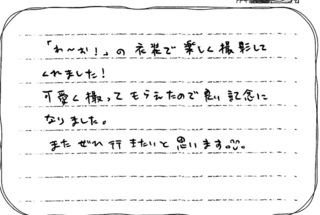 「わ〜お！」の 衣装で 楽しく撮影して
くれました！
可愛く 撮って もらえたので 良い 記念に
なりました。
また ぜひ 行きたいと 思います。